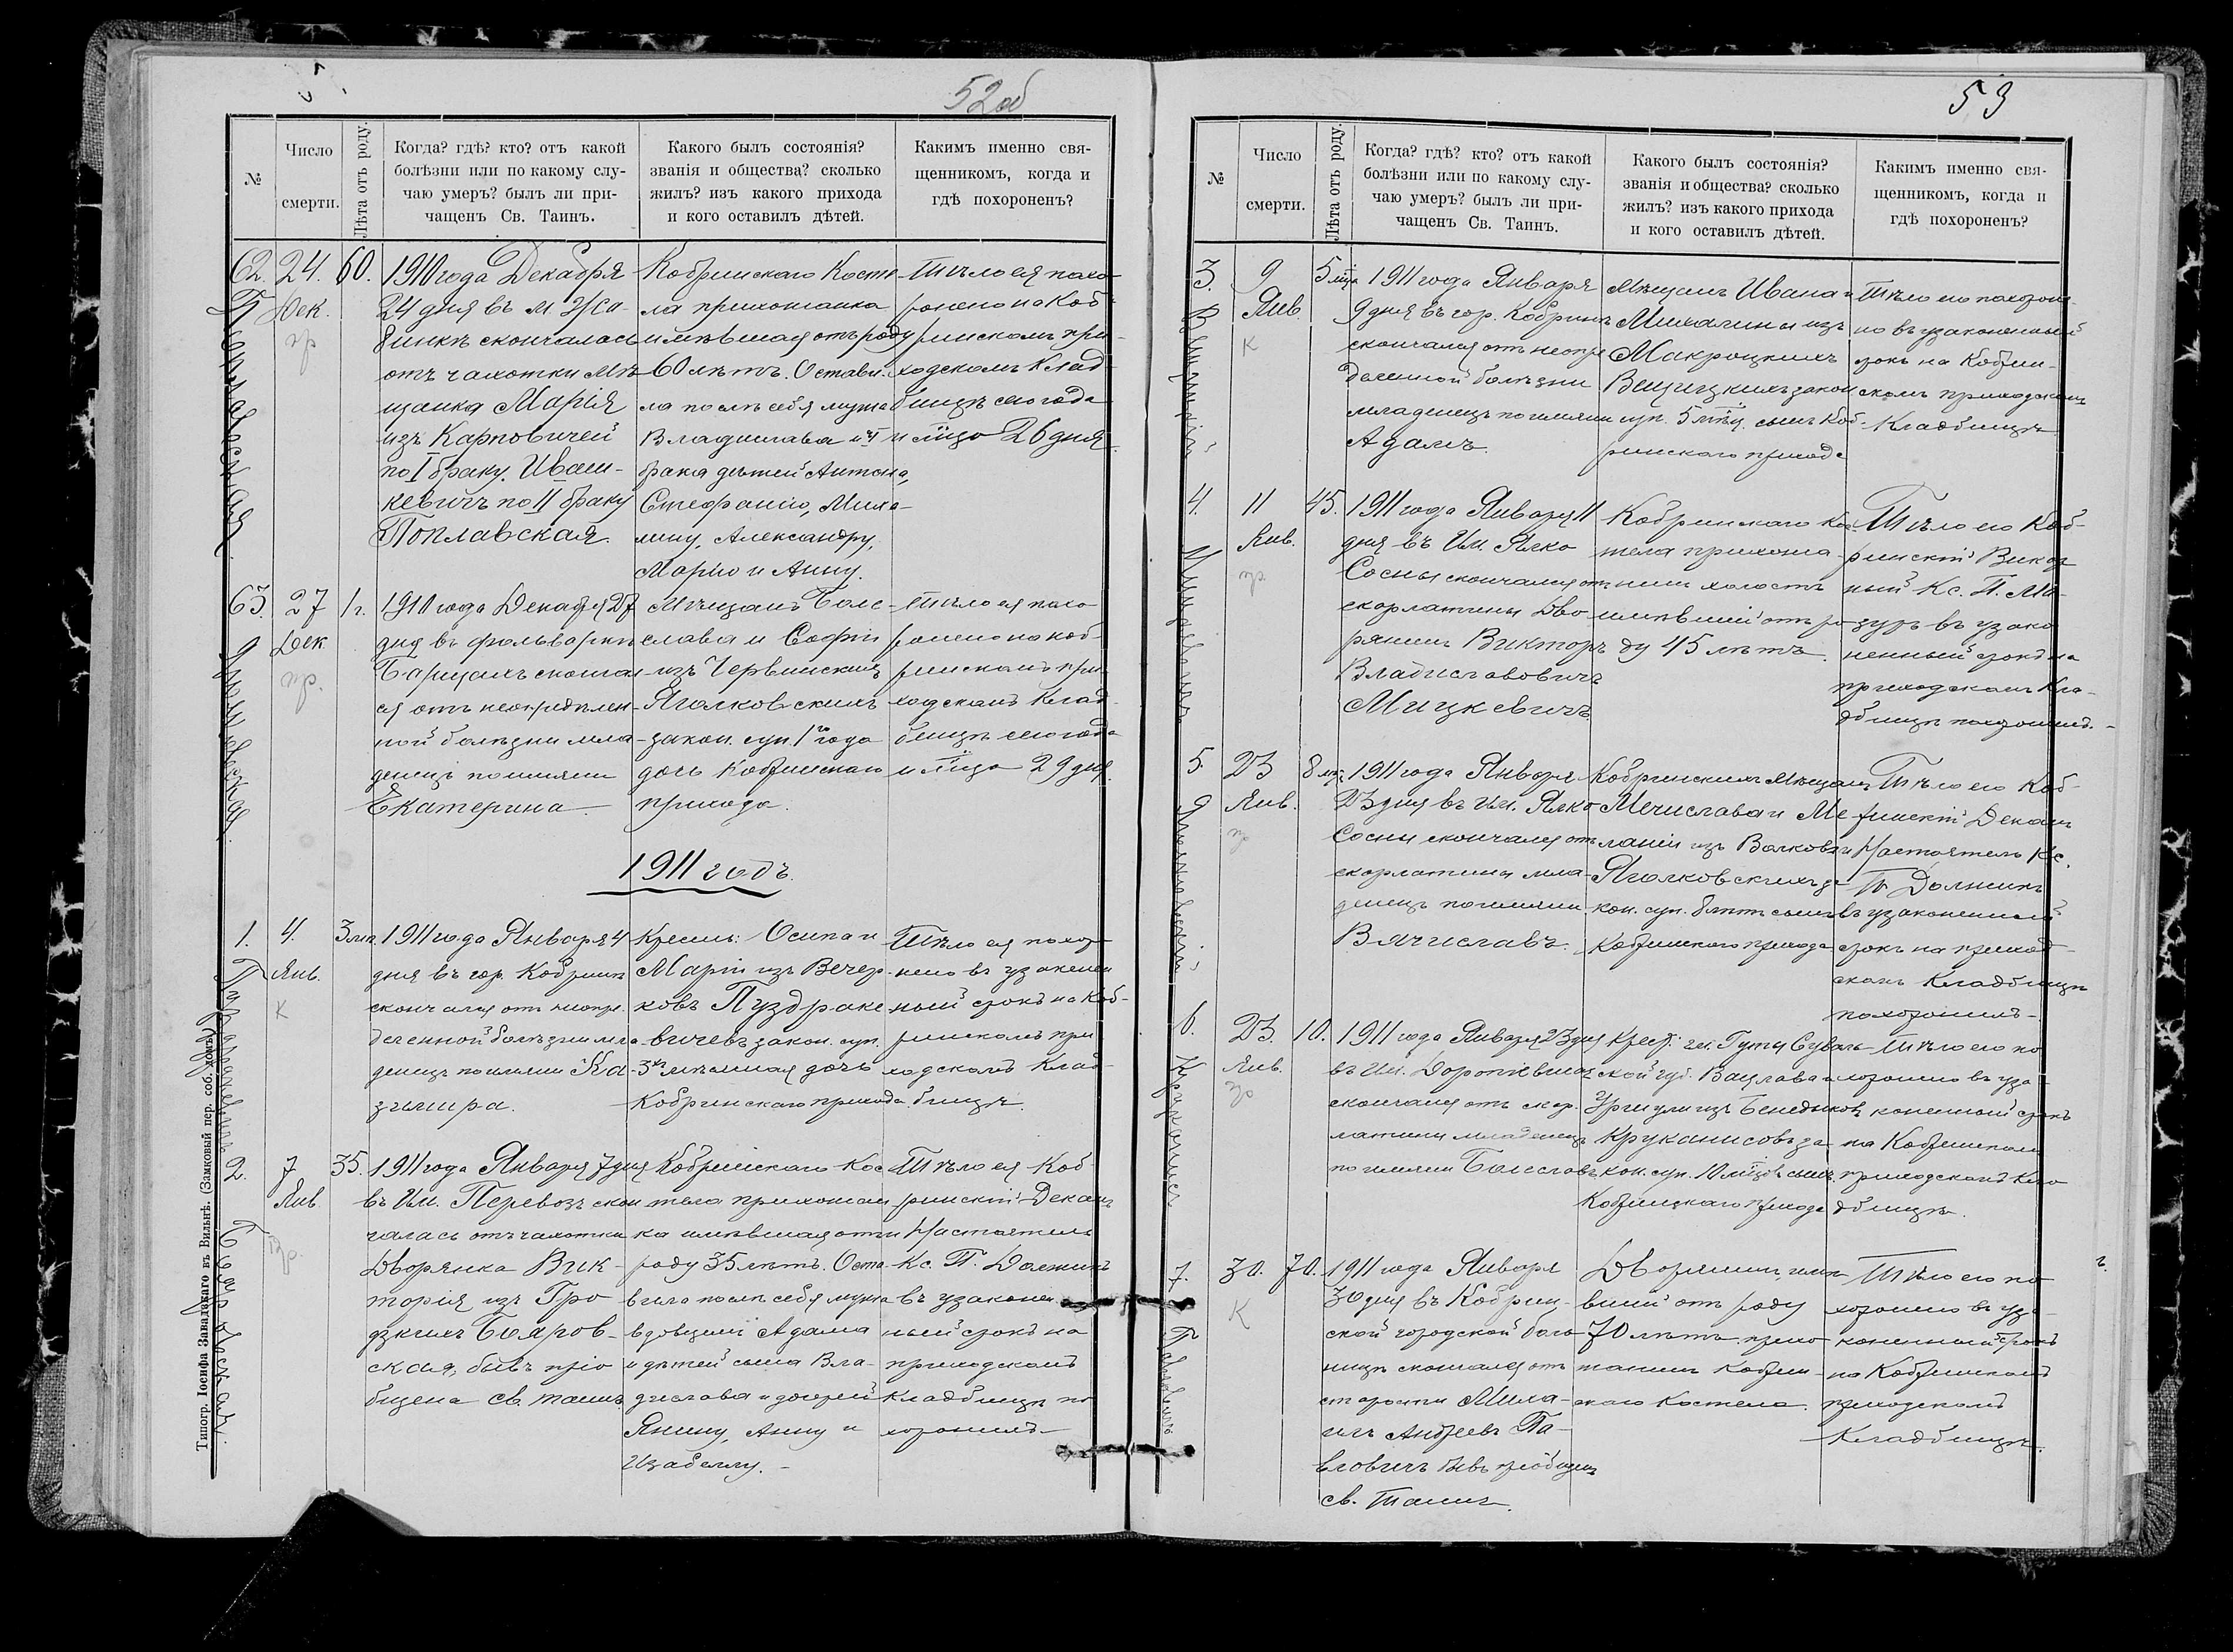 52об
№
Число
смерти.
Лѣта отъ роду.
Когда? гдѣ? кто? отъ какой
болѣзни или по какому слу-
чаю умеръ? былъ ли при-
чащенъ Св. Таинъ.
Какого былъ состоянія?
званія и общества? сколько
жилъ? изъ какого прихода
и кого оставилъ дѣтей.
Какимъ именно свя-
щенникомъ, когда и
гдѣ похороненъ?
62.
24.
Дек.
пр
60.
Поплавская
1910 года Декабря
24 дня въ м. Жа-
бинкѣ скончалась
отъ чахотки мѣ-
щанка Марія
изъ Карповичей
по I браку Иваш-
кевичъ по II браку
Поплавская.
Кобринскаго Косте-
ла прихожанка
имѣвшая отъ роду
60 лѣтъ. Остави-
ла послѣ себя мужа
Владислава и
брака дѣтей Антона,
Стефанію, Миха-
лину, Александру,
Марію и Анну.
Тѣло ея похо-
ронено на Коб-
ринскомъ при-
ходскомъ Клад-
бищѣ сего года
и мѣсяца 26 дня.
63.
27
Дек
пр.
1 г.
Яголковская
1910 года Декабря 27
дня въ фольваркѣ
Борщахъ скончал-
ся отъ неопредѣлен-
ной болѣзни мла-
денецъ по имени
Екатерина.
Мѣщанъ Боле-
слава и Софіи
изъ Червинскихъ
Яголковскихъ
закон. суп. 1го года
дочь Кобринскаго
прихода.
Тѣло ея похо-
ронено на Коб-
ринскомъ при-
ходскомъ Клад-
бищѣ сего года
и мѣсяца 29 дня.
1911 годъ.
1.
4.
Янв.
К
3 мѣ.
Пуздракевичъ
1911 года Января 4
дня въ гор. Кобринѣ
скончался отъ неопре-
дѣленной болѣзни мла-
денецъ по имени Ка-
зимира.
Кресть: Осипа и
Маріи изъ Вечер-
ковъ Пуздраке-
вичевъ закон. суп.
3хъ мѣсячная дочь
Кобринскаго прихода.
Тѣло ея похоро-
нено въ узаконен-
ный срокъ на Коб-
ринскомъ при-
ходскомъ Клад-
бищѣ.
2.
7
Янв
Пр.
35.
Бояровская
1911 года Января 7 дня
въ Им. Перевозъ скон-
чалась отъ чахотки
Дворянка Вик-
торія изъ Гро-
дзкихъ Бояров-
ская, бывъ прiо-
бщена св. таинъ.
Кобринскаго Кос-
тела прихожан-
ка имѣвшая отъ
роду 35 лѣтъ. Оста-
вила послѣ себя мужа
вдовцемъ Адама
и дѣтей сына Вла-
дислава и дочерей
Янину, Анну и
Изабеллу.
Тѣло ея Коб-
ринскій Деканъ
и Настоятель
Кс. П. Должикъ
въ узаконен-
ный срокъ на
приходскомъ
Кладбищѣ по-
хоронилъ
Типогр. Іосифа Завадзкаго въ Вильнѣ. (Замковый пер. соб. домъ)
53
№
Число
смерти.
Лѣта отъ роду.
Когда? гдѣ? кто? отъ какой
болѣзни или по какому слу-
чаю умеръ? былъ ли при-
чащенъ Св. Таинъ.
Какого былъ состоянія?
званія и общества? сколько
жилъ? изъ какого прихода
и кого оставилъ дѣтей.
Какимъ именно свя-
щенникомъ, когда и
гдѣ похороненъ?
3.
9
Янв.
К
5 мца
Вещицкій
1911 года Января
9 дня въ гор. Кобринѣ
скончался отъ неопре-
дѣленной болѣзни
младенецъ по имени
Адамъ.
Мѣщанъ Ивана и
Михалины изъ
Макроцкихъ
Вещицкихъ закон
суп. 5 мѣсц. сынъ Коб-
ринскаго прихода
Тѣло его похороне-
но въ узаконенный
срокъ на Кобрин-
скомъ приходскомъ
Кладбищѣ
4.
11
Янв.
пр.
45.
Мицкевичъ
1911 года Января 11
дня въ Им. Яико
Сосны скончался отъ
скорлатины Дво-
рянинъ Викторъ
Владиславовичъ
Мицкевичъ
Кобринскаго Кос-
тела прихожа-
нинъ холостъ
имѣвшій отъ ро-
ду 45 лѣтъ.
Тѣло его Коб-
ринскій Викар-
ный Кс. П. Ма-
зуръ въ узако-
ненный срокъ на
приходскомъ Кла-
дбищѣ похоронилъ.
5.
23
Янв.
пр
8 лѣ.
Яголковскій
1911 года Января
23 дня въ Им. Яико
Сосны скончался отъ
скорлатины мла-
денецъ по имени
Вячиславъ.
Кобринскихъ Мѣщанъ
Мечислава и Ме-
ланіи изъ Волковъ
Яголковскихъ за-
кон. суп. 8 лѣтъ сынъ
Кобринскаго прихода
Тѣло его Коб-
ринскій Деканъ
и Настоятель Кс.
П. Должикъ
въ узаконенный
срокъ на приход-
скомъ Кладбищѣ
похоронилъ
6.
23.
Янв.
пр
10.
Круканисъ
1911 года Января 23 дня
въ Им. Доропіевичи
скончался отъ скор-
латины младенецъ
по имени Болеславъ
Крест. гм. Гуты Суваль-
ской губ. Вацлава и
Уршули изъ Бенедиковъ
Круканисовъ за-
кон. суп. 10 мѣсцъ сынъ
Кобринскаго прихода
Тѣло его по-
хоронено въ уза-
коненный срокъ
на Кобринскомъ
приходскомъ Кла-
дбищѣ.
7.
30.
К
70.
Павловичъ
1911 года Января
30 дня въ Кобрин-
ской городской боль-
ницѣ скончался отъ
старости Миха-
илъ Андреевъ Па-
вловичъ бывъ пріобщенъ
св. Таинъ.
Дворянинъ, имѣ-
вшій отъ роду
70 лѣтъ прихо-
жанинъ Кобрин-
скаго Костела.
Тѣло его по-
хоронено въ уза-
коненный срокъ
на Кобринскомъ
приходскомъ
Кладбищѣ.